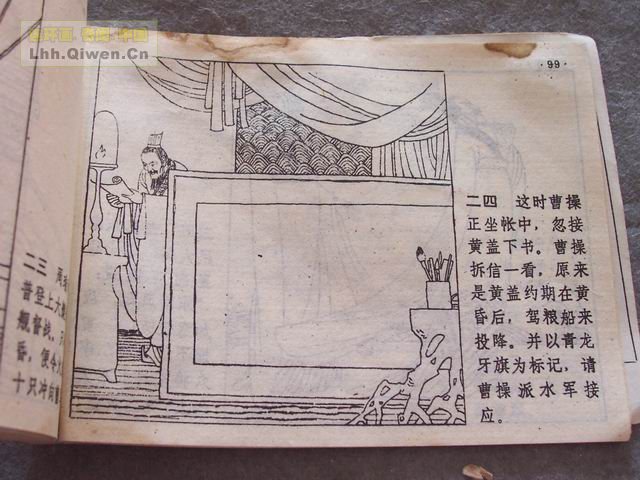 Lhh.Qiwen.Cn
·99·
二四 这时曹操
正坐帐中，忽接
黄盖下书。曹操
拆信一看，原来
是黄盖约期在黄
昏后，驾粮船来
投降。并以青龙
牙旗为标记，请
曹操派水军接
应。
二三
昔登上大
舰督战。
昏，便令
十只冲向曹